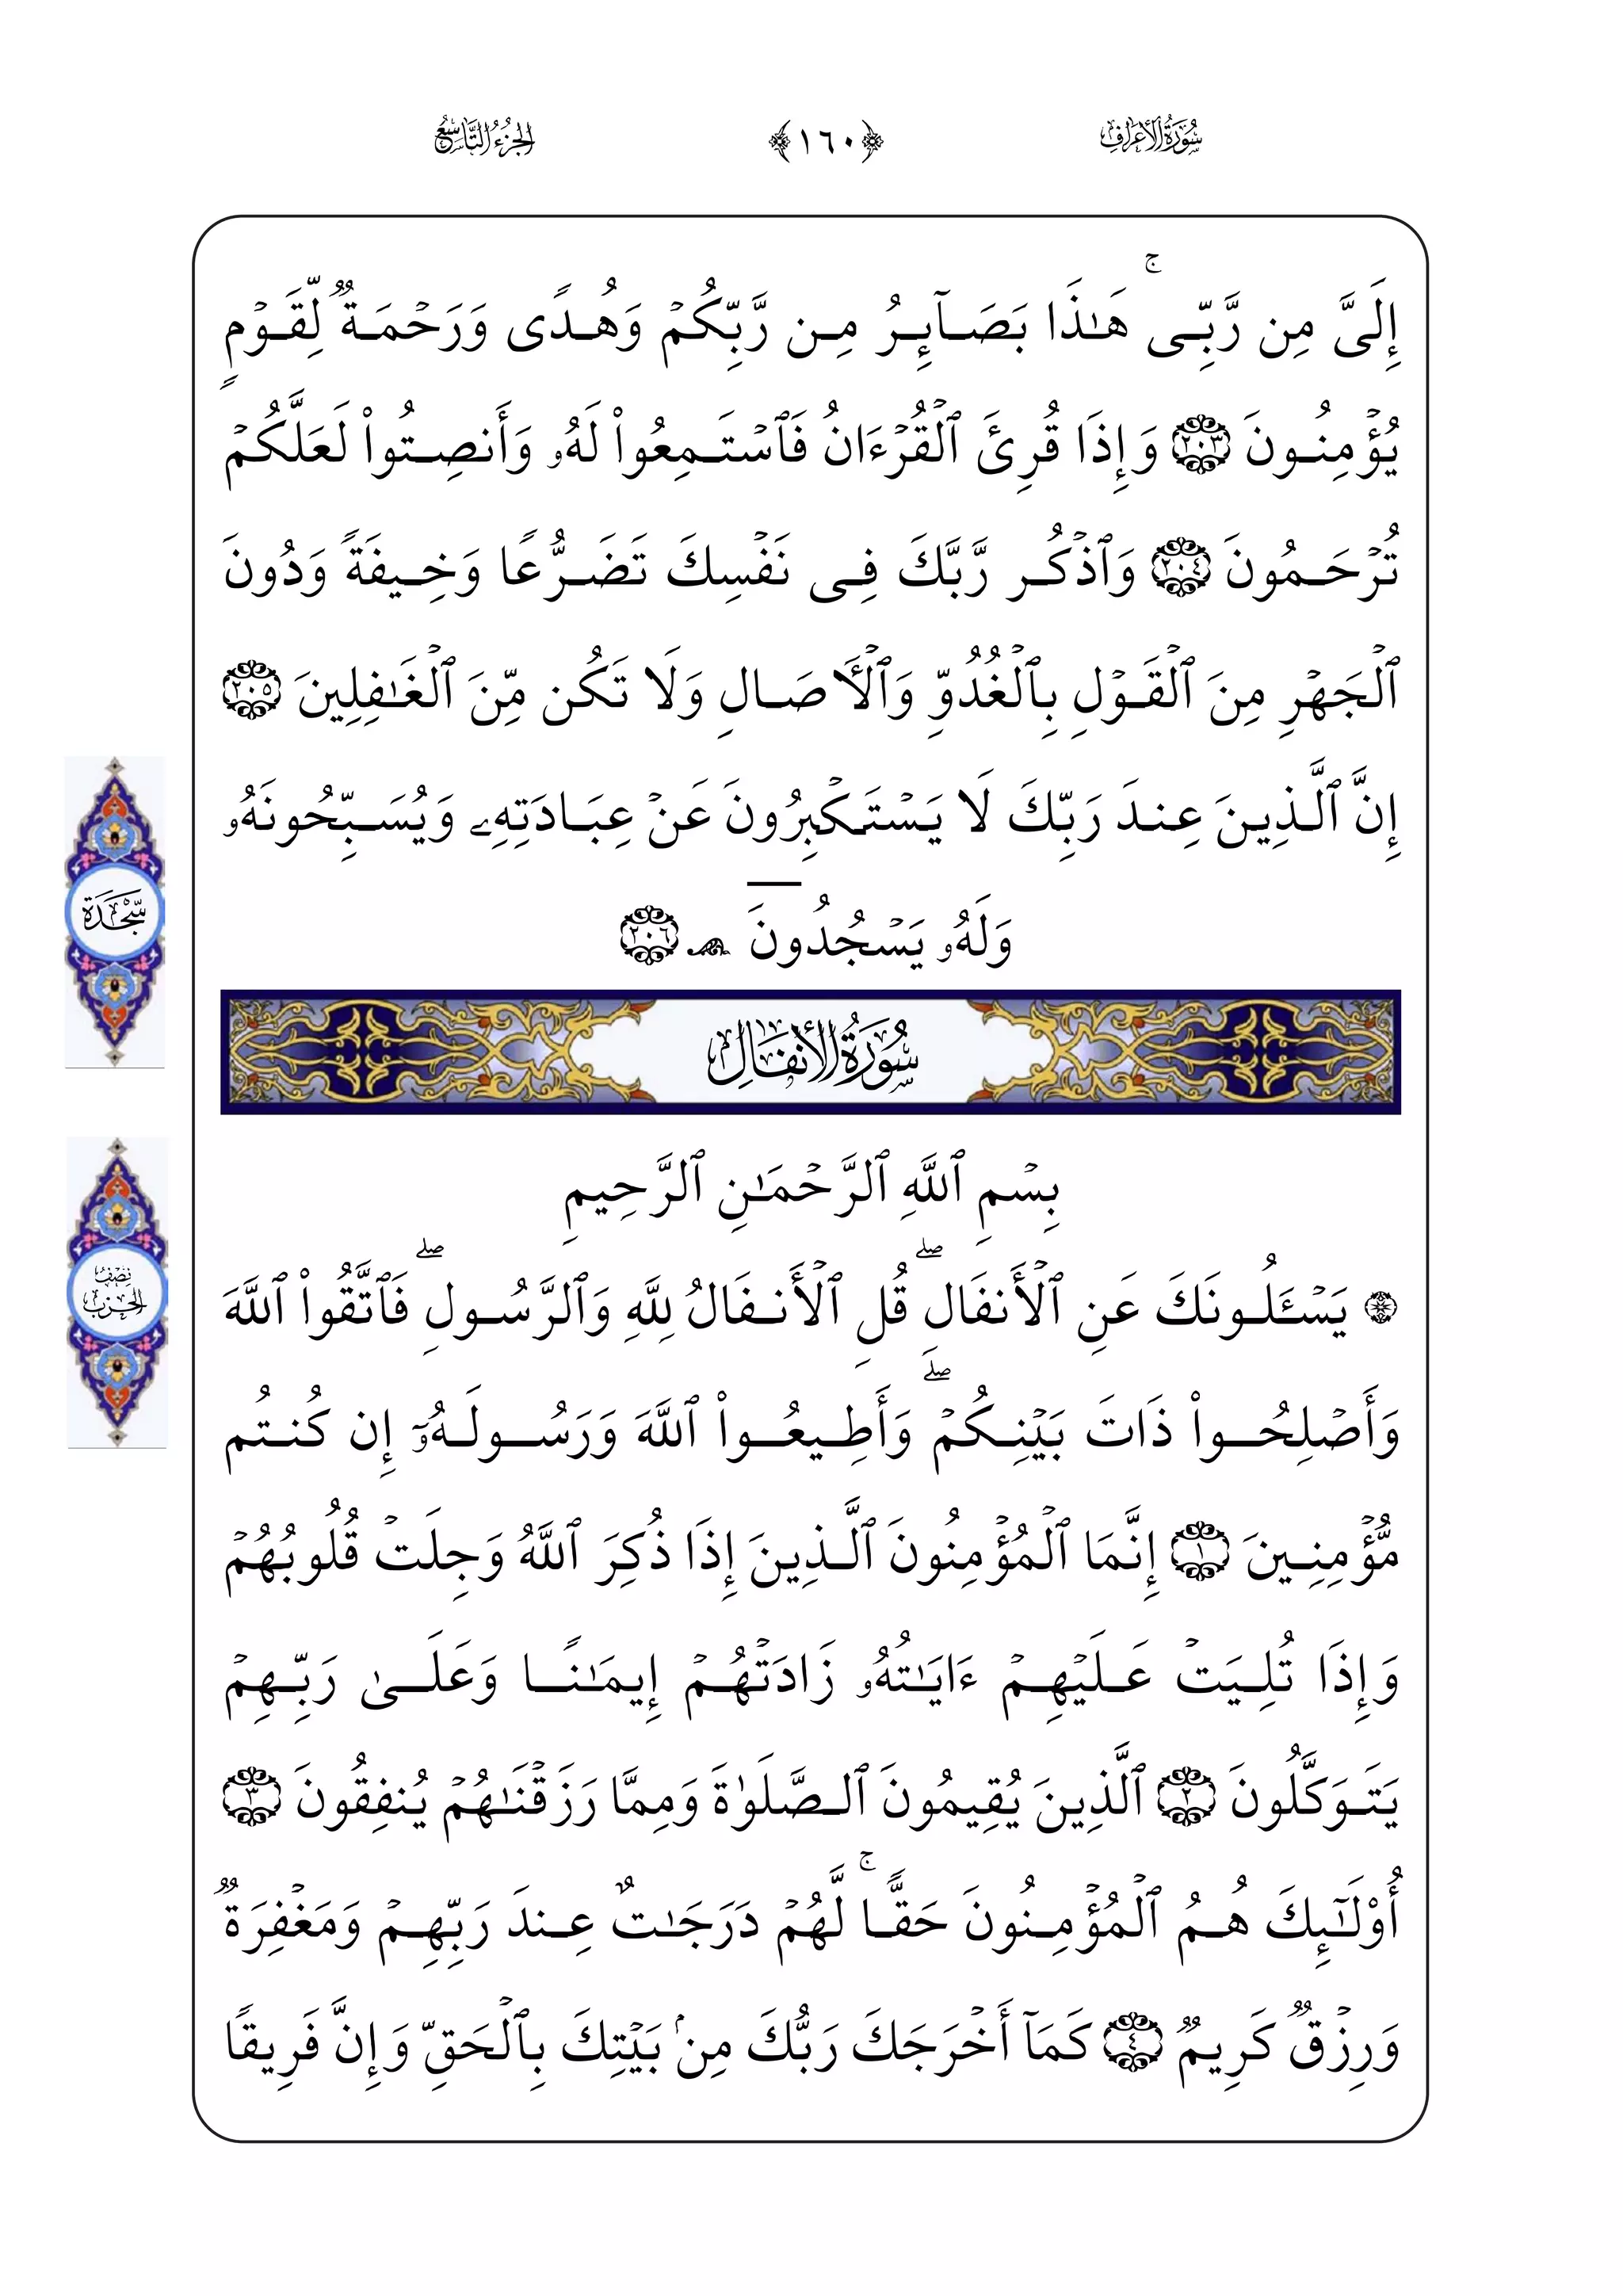 سُورَةُ الأَعْرَافِ ﴿١٦٠﴾ الجُزْءُ التَّاسِعُ
إِلَىَّ مِن رَّبِّى ۚ هَـٰذَا بَصَآئِرُ مِن رَّبِّكُمۡ وَهُدًى وَرَحۡمَةٌ لِّقَوۡمٍ
يُؤۡمِنُونَ ٢٠٣ وَإِذَا قُرِئَ ٱلۡقُرۡءَانُ فَٱسۡتَمِعُوا۟ لَهُۥ وَأَنصِتُوا۟ لَعَلَّكُمۡ
تُرۡحَمُونَ ٢٠٤ وَٱذۡكُر رَّبَّكَ فِى نَفۡسِكَ تَضَرُّعًا وَخِيفَةً وَدُونَ
ٱلۡجَهۡرِ مِنَ ٱلۡقَوۡلِ بِٱلۡغُدُوِّ وَٱلۡأٓصَالِ وَلَا تَكُن مِّنَ ٱلۡغَـٰفِلِينَ ٢٠٥
إِنَّ ٱلَّذِينَ عِندَ رَبِّكَ لَا يَسۡتَكۡبِرُونَ عَنۡ عِبَادَتِهِۦ وَيُسَبِّحُونَهُۥ
سَجْدَة
وَلَهُۥ يَسۡجُدُونَ ۩ ٢٠٦
سُورَةُ الأَنفَالِ
بِسۡمِ ٱللَّهِ ٱلرَّحۡمَـٰنِ ٱلرَّحِيمِ
نِصْفُ الحِزْب
۞ يَسۡـَٔلُونَكَ عَنِ ٱلۡأَنفَالِ ۖ قُلِ ٱلۡأَنفَالُ لِلَّهِ وَٱلرَّسُولِ ۖ فَٱتَّقُوا۟ ٱللَّهَ
وَأَصۡلِحُوا۟ ذَاتَ بَيۡنِكُمۡ ۖ وَأَطِيعُوا۟ ٱللَّهَ وَرَسُولَهُۥٓ إِن كُنتُم
مُّؤۡمِنِينَ ١ إِنَّمَا ٱلۡمُؤۡمِنُونَ ٱلَّذِينَ إِذَا ذُكِرَ ٱللَّهُ وَجِلَتۡ قُلُوبُهُمۡ
وَإِذَا تُلِيَتۡ عَلَيۡهِمۡ ءَايَـٰتُهُۥ زَادَتۡهُمۡ إِيمَـٰنًا وَعَلَىٰ رَبِّهِمۡ
يَتَوَكَّلُونَ ٢ ٱلَّذِينَ يُقِيمُونَ ٱلصَّلَوٰةَ وَمِمَّا رَزَقۡنَـٰهُمۡ يُنفِقُونَ ٣
أُو۟لَـٰٓئِكَ هُمُ ٱلۡمُؤۡمِنُونَ حَقًّا ۚ لَّهُمۡ دَرَجَـٰتٌ عِندَ رَبِّهِمۡ وَمَغۡفِرَةٌ
وَرِزۡقٌ كَرِيمٌ ٤ كَمَآ أَخۡرَجَكَ رَبُّكَ مِنۢ بَيۡتِكَ بِٱلۡحَقِّ وَإِنَّ فَرِيقًا